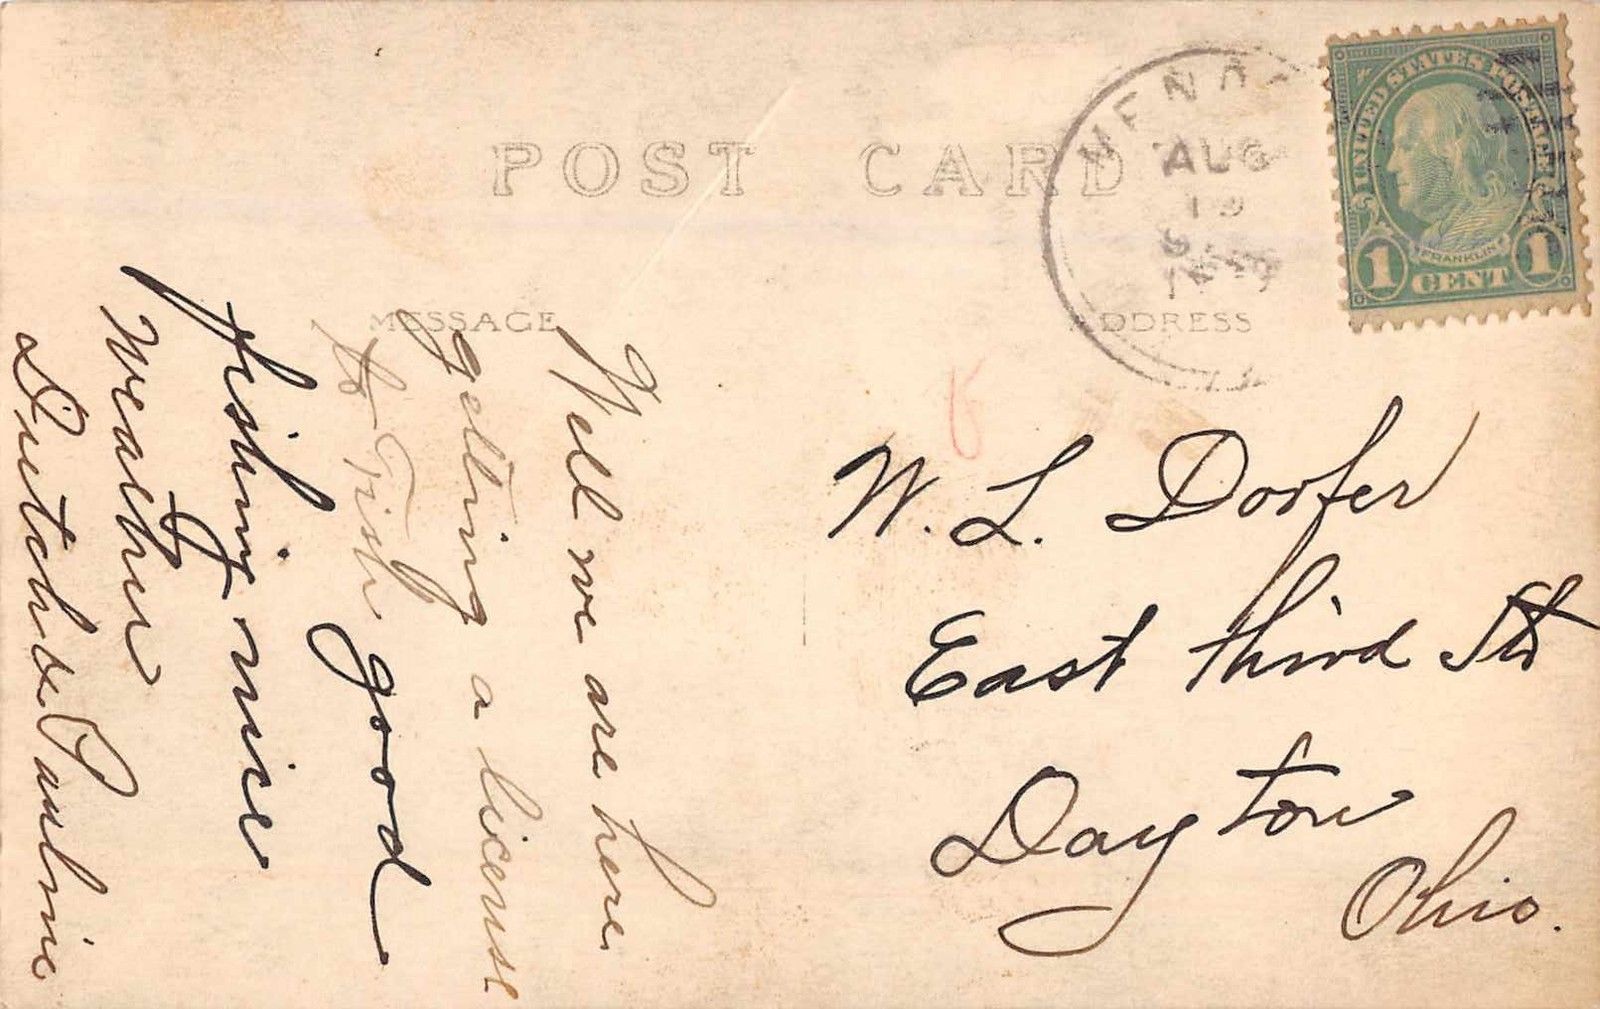 POST CARD
MESSAGE
ADDRESS
AUG
UNITED STATES POSTAGE
FRANKLIN
1 CENT 1
Well we are here
getting a license
to Fish good
fishing nice
Weather
Dutch & Pauline
W. L. Dorfer
East Third St
Dayton
Ohio.